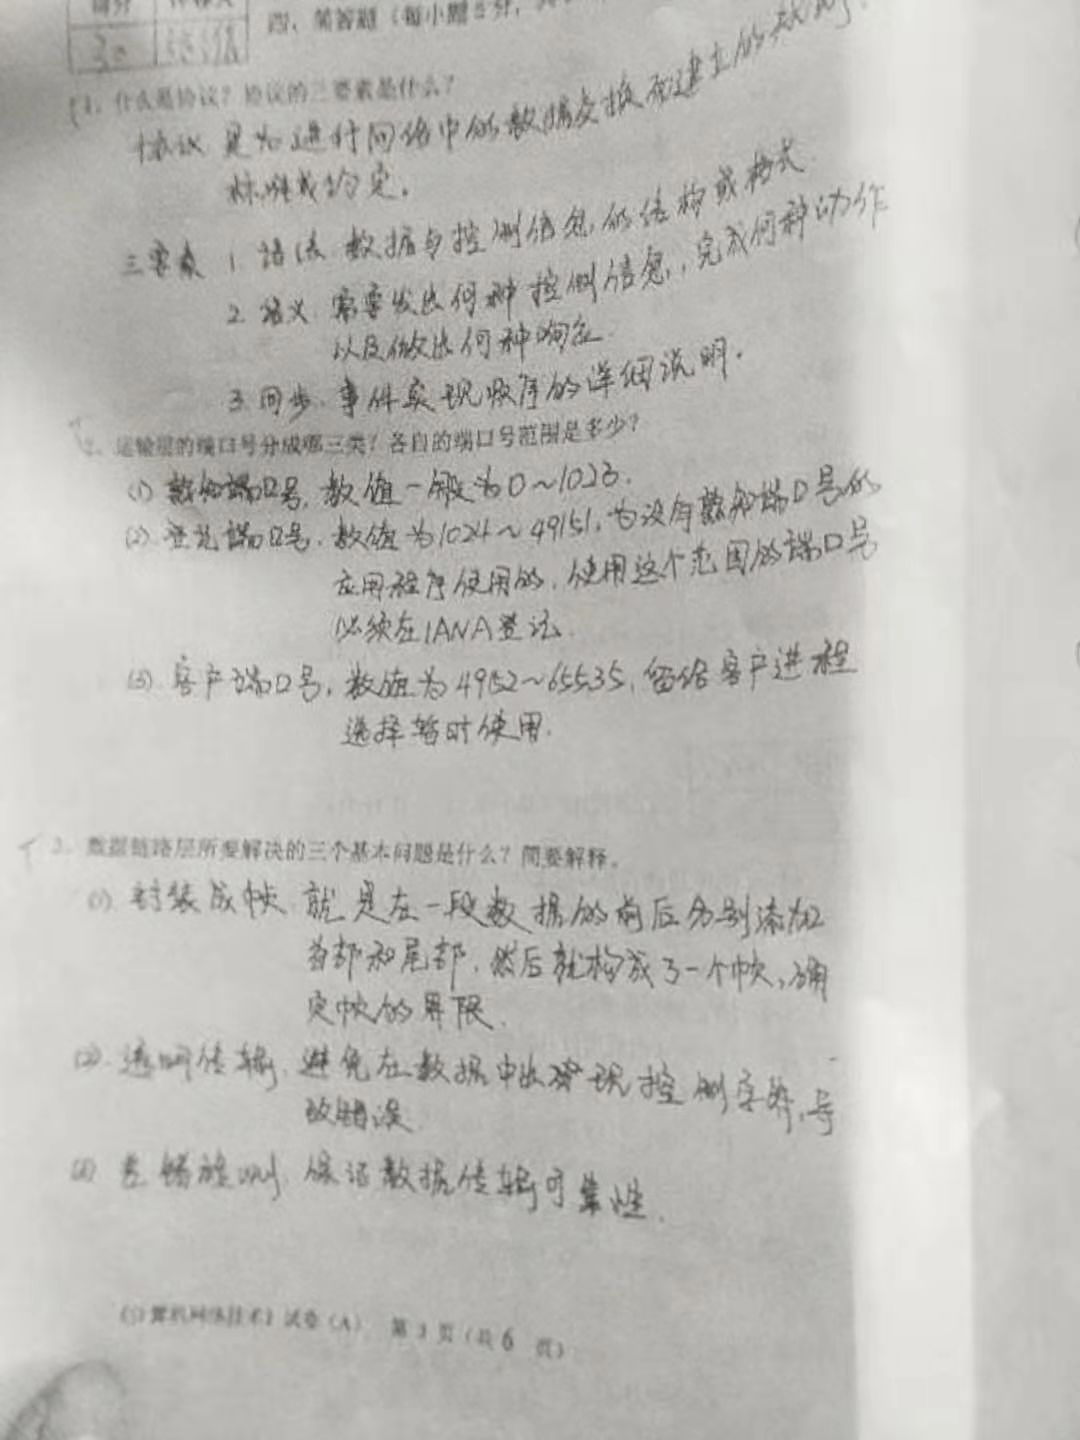 得分
30
四、简答题（每小题5分，
1、什么是协议？协议的三要素是什么？
协议 是为进行网络中的数据交换而建立的规则、
标准或约定。
三要素 1. 语法. 数据与控制信息的结构或格式.
2. 语义. 需要发出何种控制信息，完成何种动作
以及做出何种响应.
3. 同步. 事件实现顺序的详细说明.
2、运输层的端口号分成哪三类？各自的端口号范围是多少？
(1) 熟知端口号，数值一般为0～1023.
(2). 登记端口号. 数值为1024～49151，为没有熟知端口号的
应用程序使用的，使用这个范围的端口号
必须在IANA登记.
(3). 客户端口号，数值为4952～65535，留给客户进程
选择暂时使用.
3、数据链路层所要解决的三个基本问题是什么？简要解释。
(1) 封装成帧. 就是在一段数据的前后分别添加
首部和尾部，然后就构成了一个帧，确
定帧的界限.
(2). 透明传输. 避免在数据中出现控制字符，导
致错误.
(3) 差错检测. 保证数据传输可靠性.
《计算机网络技术》试卷（A） 第 3 页（共 6 页）